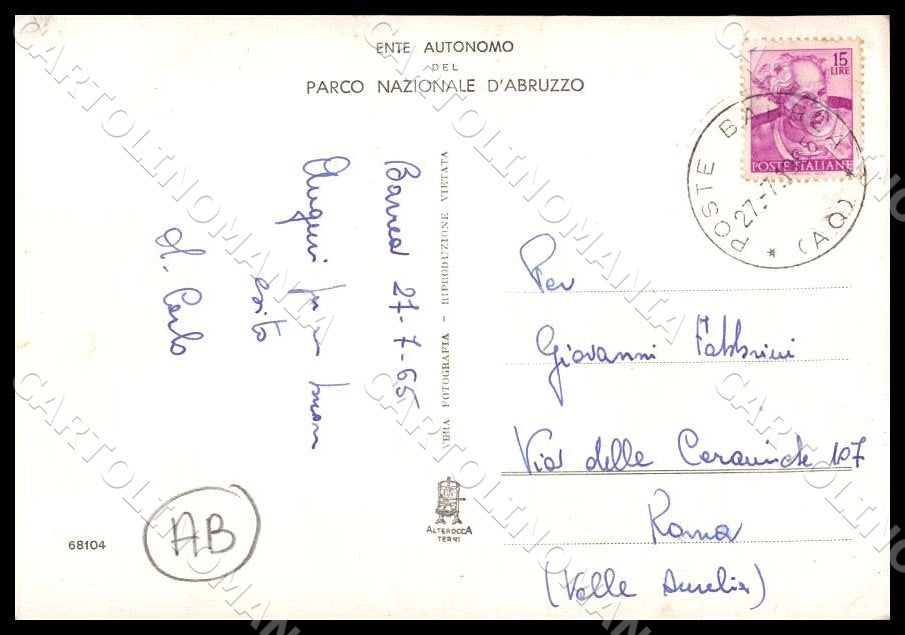 ENTE AUTONOMO
DEL
PARCO NAZIONALE D'ABRUZZO
15
LIRE
POSTE ITALIANE
POSTE BARREA (AQ)
27.-7.1965
Barrea 27-7-65
Auguri per un buon
esito
d. Carlo
VERA FOTOGRAFIA - RIPRODUZIONE VIETATA
Per
Giovanni Fabbrini
Via delle Ceramiche 107
Roma
(Valle Aurelia)
ALTEROCCA
TERNI
68104
AB
CARTOLINOMANIA